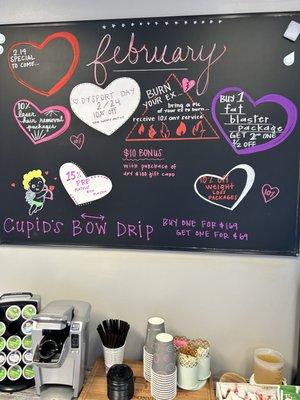 February
2.14
SPECIAL
TO COME...
DYSPORT DAY
2/24
10% OFF
BURN
YOUR EX...
bring a pic
of your ex to burn...
receive 10% any service
BURN
Buy 1
fat
BLASTER
package
GET 2ND ONE
1/2 OFF
10%
laser
HAIR REMOVAL
packages
$10 BONUS
with purchase of
any $100 gift card
15%
PRF
10% OFF
weight
loss
PACKAGES
CUPID'S BOW DRIP
BUY ONE FOR $169
GET ONE FOR $69